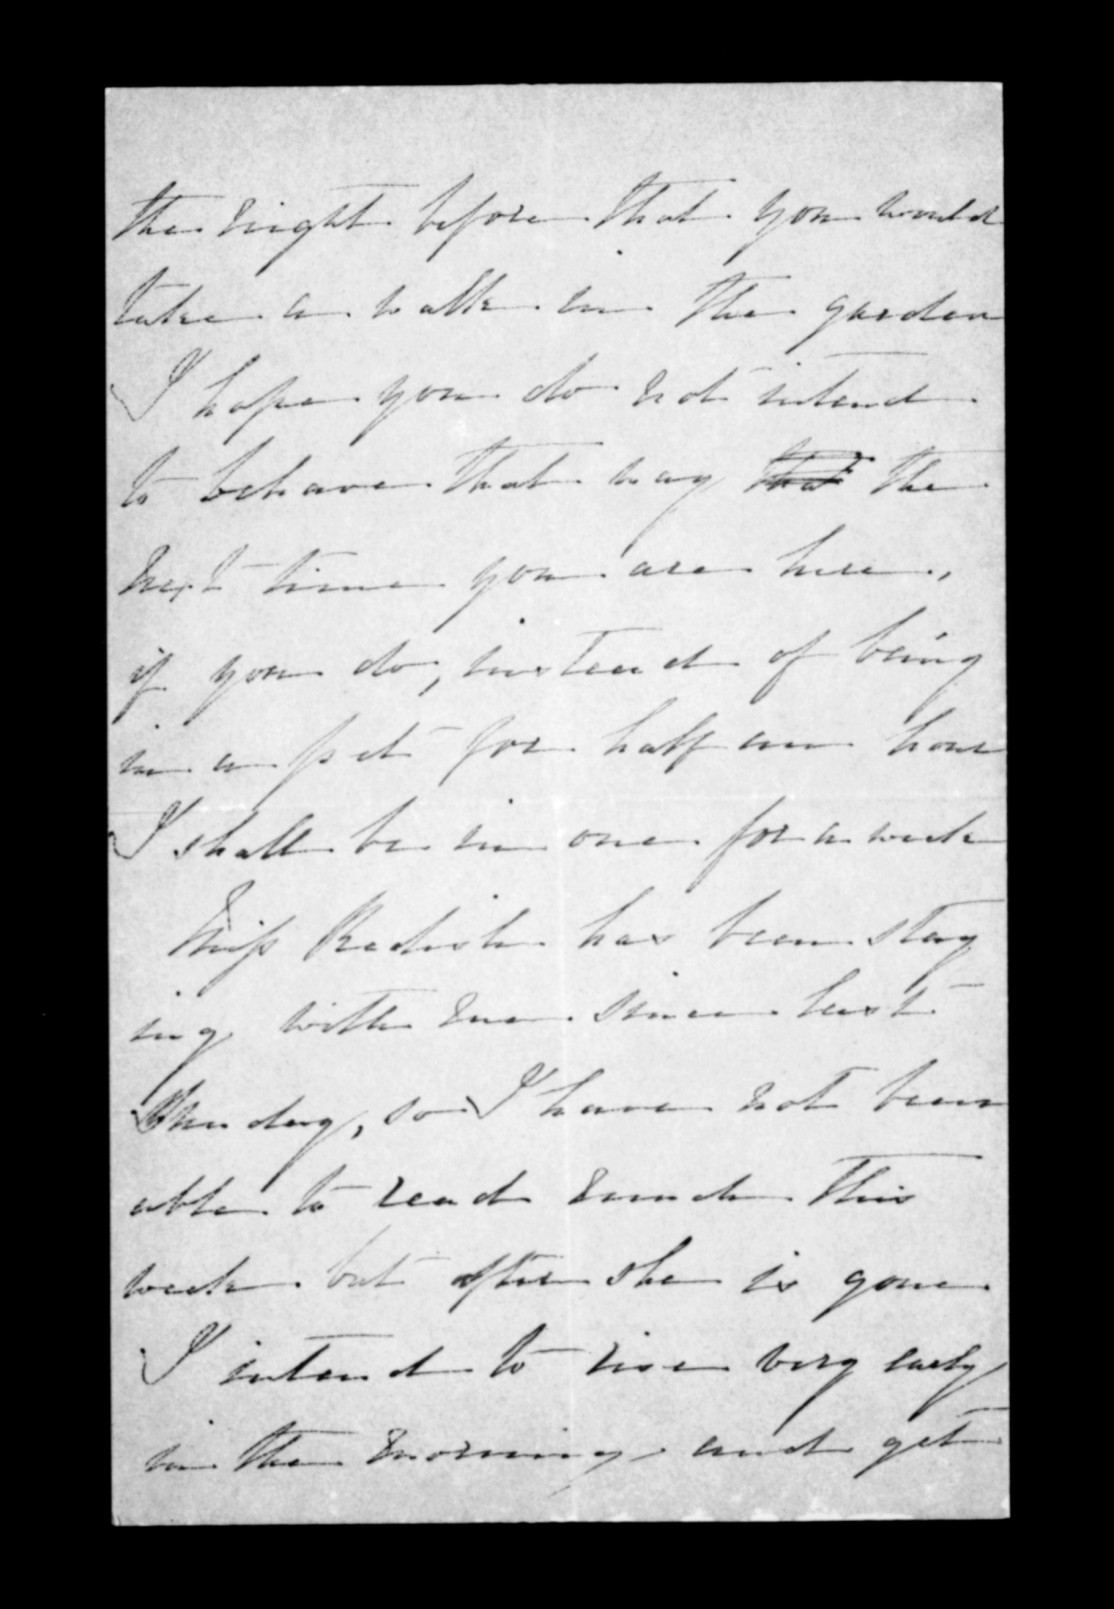 the night before that you would
take a walk in the garden
I hope you do not intend
to behave that way that the
next time you are here,
if you do, instead of being
in a pet for half an hour
I shall be in one for a week
Miss Radish has been stay
ing with me since last
Sunday, so I have not been
able to read much this
week but after she is gone
I intend to rise very early
in the morning and get